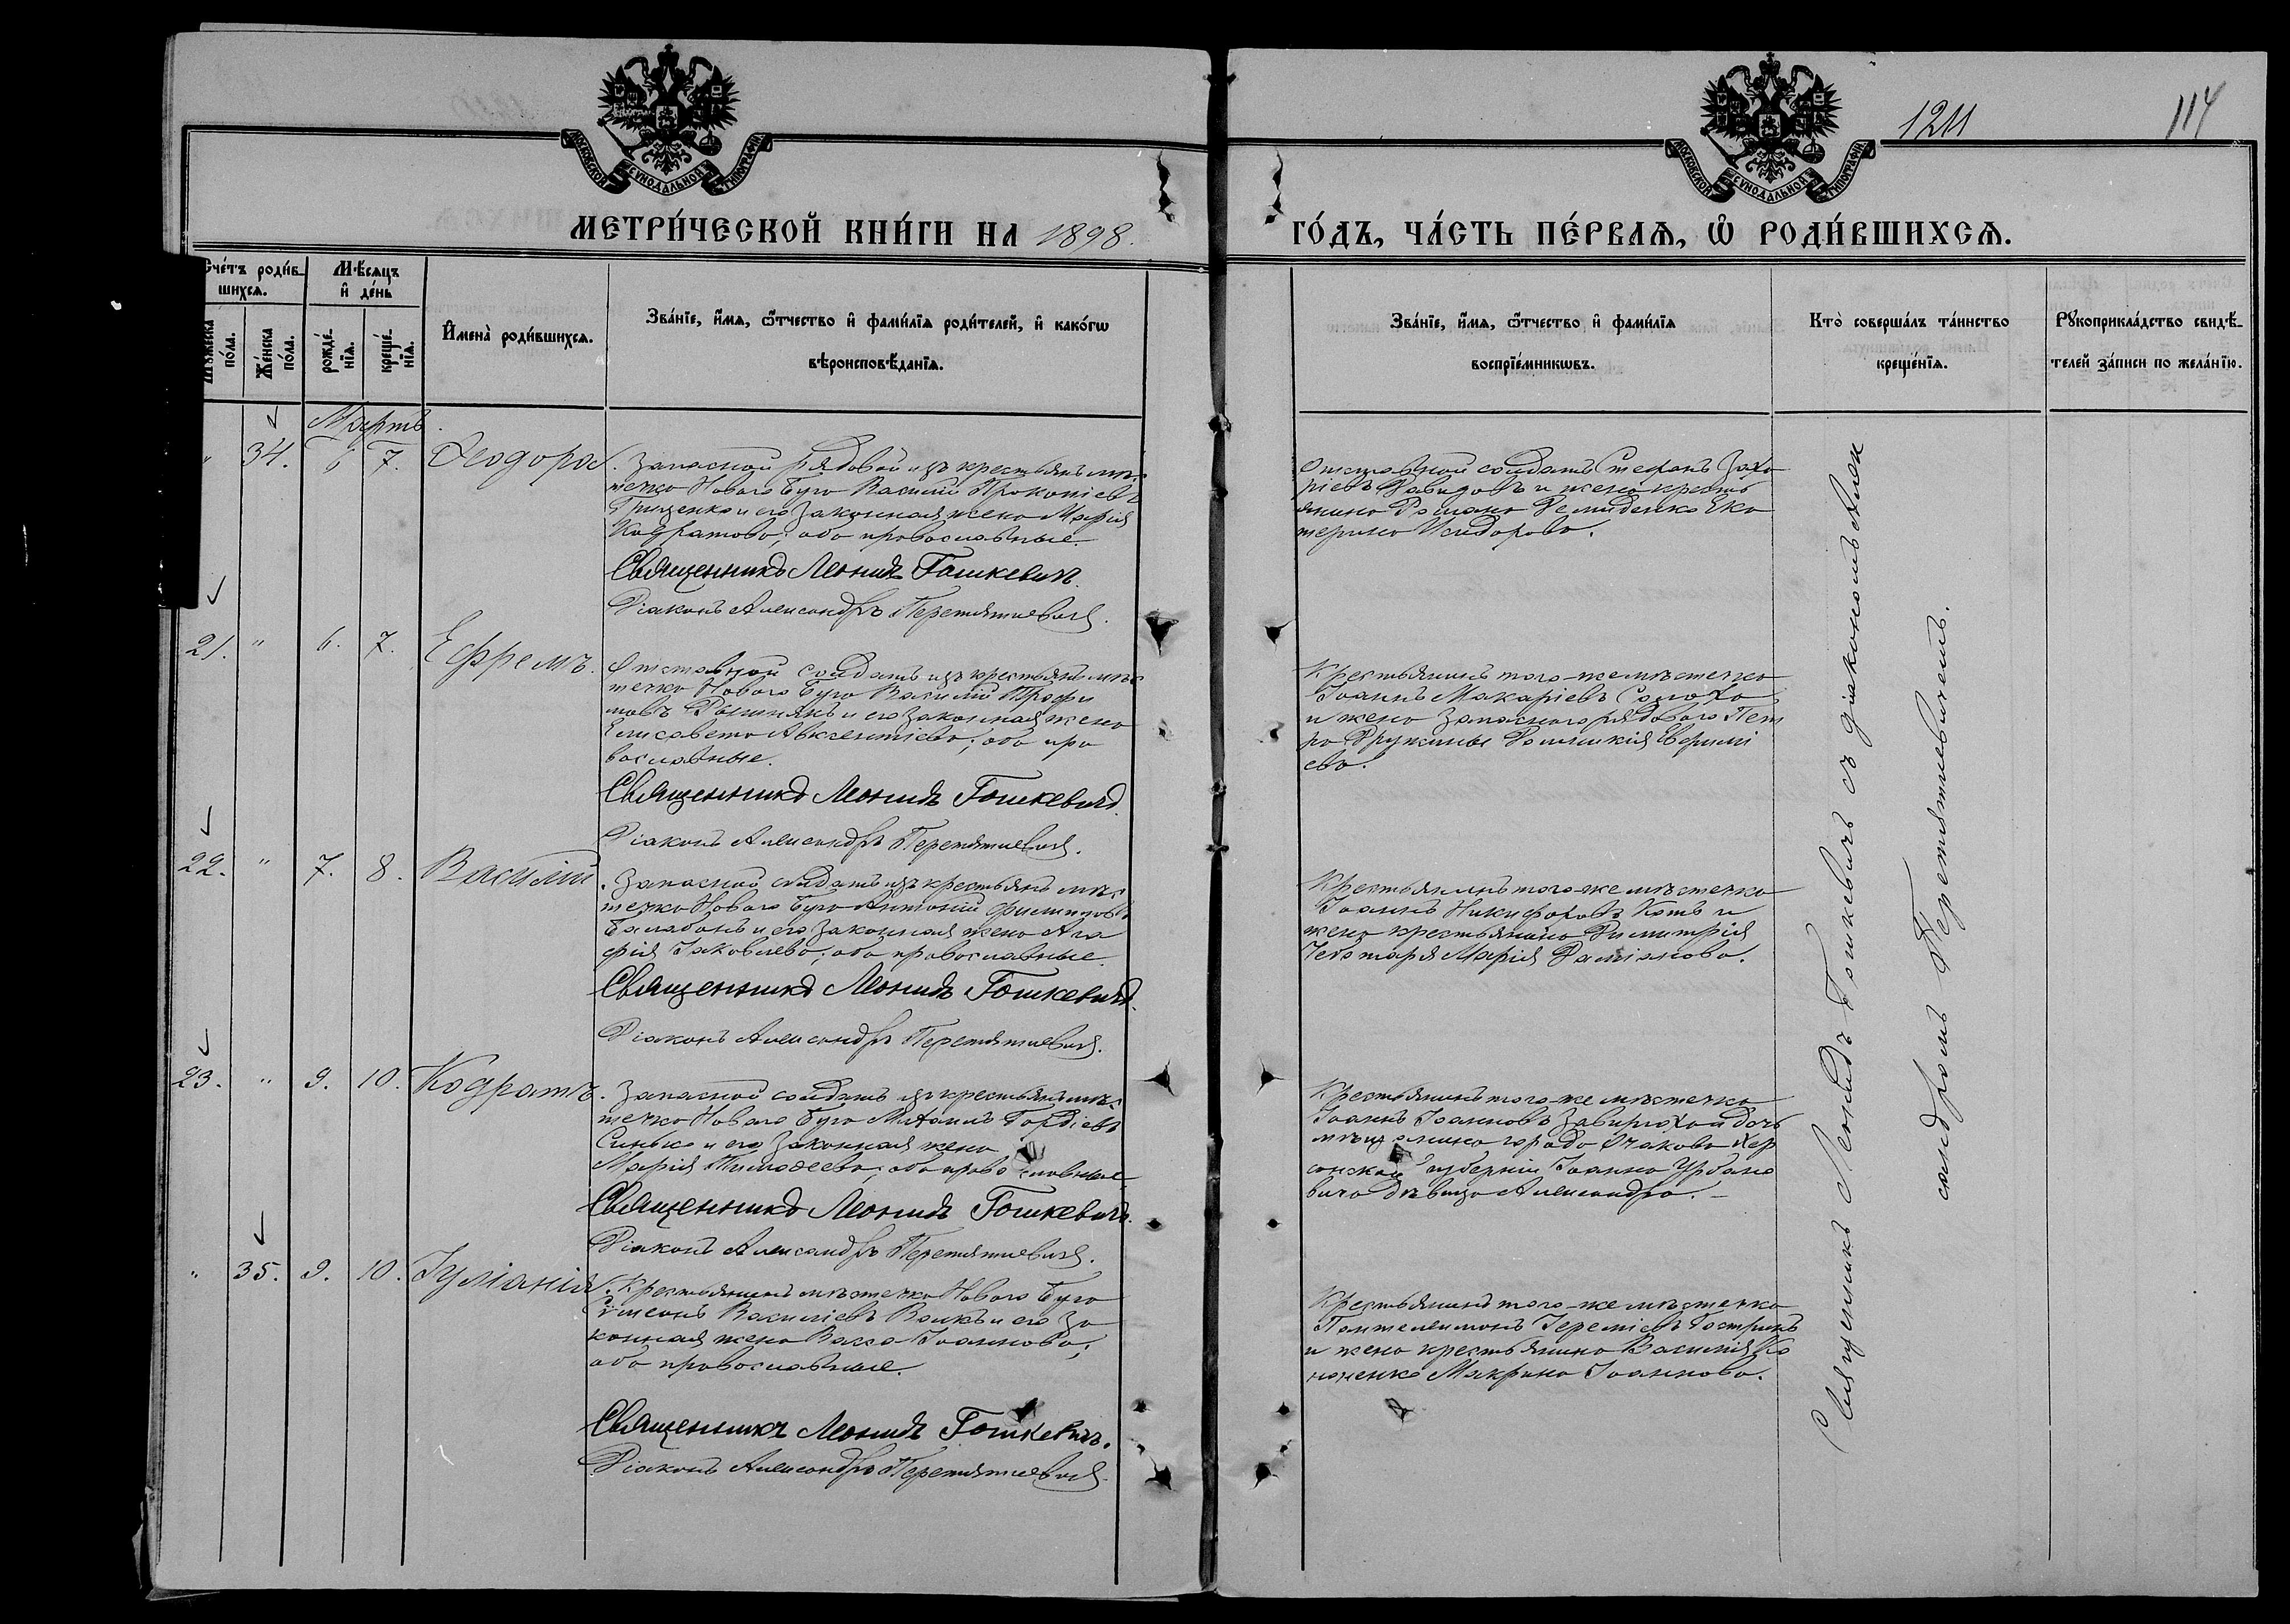 1211
114
МОСКОВСКОЙ СУНОДАЛЬНОЙ ТИПОГРАФІИ
МОСКОВСКОЙ СУНОДАЛЬНОЙ ТИПОГРАФІИ
МЕТРИ́ЧЕСКОЙ КНИ́ГИ НА 1898.
ГО́ДЪ, ЧА́СТЬ ПЕ́РВАѦ, Ѡ҆ РОДИ́ВШИХСѦ.
Сче́тъ роди́в-
шихсѧ.
Мѣ́сѧцъ
и҆ де́нь
Мꙋ́жеска
по́ла.
Же́нска
по́ла.
рожде́-
нїѧ.
креще́-
нїѧ.
И҆мена̀ роди́вшихсѧ.
Зва́нїе, и҆́мѧ, ѻ҆́тчество и҆ фами́лїѧ роди́телей, и҆ како́гѡ
вѣроисповѣ́данїѧ.
Зва́нїе, и҆́мѧ, ѻ҆́тчество и҆ фами́лїѧ
воспрїе́мникѡвъ.
Кто̀ соверша́лъ та́инство
креще́нїѧ.
Рꙋкоприкла́дство свидѣ́-
телей за́писи по жела́нїю.
Мартъ.
" 34. 6 7. Ѳеодора.
Запасной рядовой изъ крестьянъ мѣс
течка Новаго Буга Василій Прокопіевъ
Грищенко и его законная жена Марія
Кодратова; оба православные.
Священникъ Леонидъ Гошкевичъ.
Діаконъ Александръ Перетятковичъ.
Отставной солдатъ Стефанъ Заха
ріевъ Давидовъ и жена кресть
янина Романа Демиденка Ека
терина Исидорова.
21. " 6. 7. Ефремъ.
Отставной солдатъ изъ крестьянъ мѣс
течка Новаго Буга Василій Трофи
мовъ и его законная жена
Елисавета Авксентіева; оба пра
вославные.
Священникъ Леонидъ Гошкевичъ.
Діаконъ Александръ Перетятковичъ.
Крестьянинъ того-же мѣстечка
Іоаннъ Макаріевъ Солоха
и жена запасного рядового Пет
ра Дружины Домникія
ева.
22. " 7. 8. Василій.
Запасной солдатъ изъ крестьянъ мѣс
течка Новаго Буга Антоній Филиповъ
Балабанъ и его законная жена Ага
фія Іаковлева; оба православные.
Священникъ Леонидъ Гошкевичъ.
Діаконъ Александръ Перетятковичъ.
Крестьянинъ того-же мѣстечка
Іоаннъ Никифоровъ Котъ и
жена крестьянина Димитрія
Чеботаря Марія Даміанова.
23. " 9. 10. Кодратъ.
Запасной солдатъ изъ крестьянъ мѣс
течка Новаго Буга Михаилъ Гордіевъ
Синько и его законная жена
Марія Тимоѳеева; оба православные.
Священникъ Леонидъ Гошкевичъ.
Діаконъ Александръ Перетятковичъ.
Крестьянинъ того-же мѣстечка
Іоаннъ Іоанновъ Завирюха и дочь
мѣщанина города Очакова Хер
сонской губерніи Іоанна Урбано
вича дѣвица Александра.
" 35. 9. 10. Іуліанія.
Крестьянинъ мѣстечка Новаго Буга
Сѵмеонъ Василіевъ Волкъ и его за
конная жена Васса Іоаннова;
оба православные.
Священникъ Леонидъ Гошкевичъ.
Діаконъ Александръ Перетятковичъ.
Крестьянинъ того-же мѣстечка
Пантелеимонъ Іереміевъ
и жена крестьянина Василія Ко
ноненка Макрина Іоаннова.
Священникъ Леонидъ Гошкевичъ съ діакономъ Алек
сандромъ Перетятковичемъ.